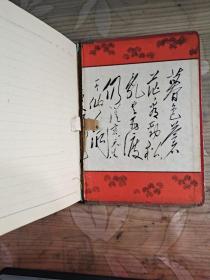 暮色苍
茫看劲松
乱云飞渡
仍从容天生
一个仙人洞